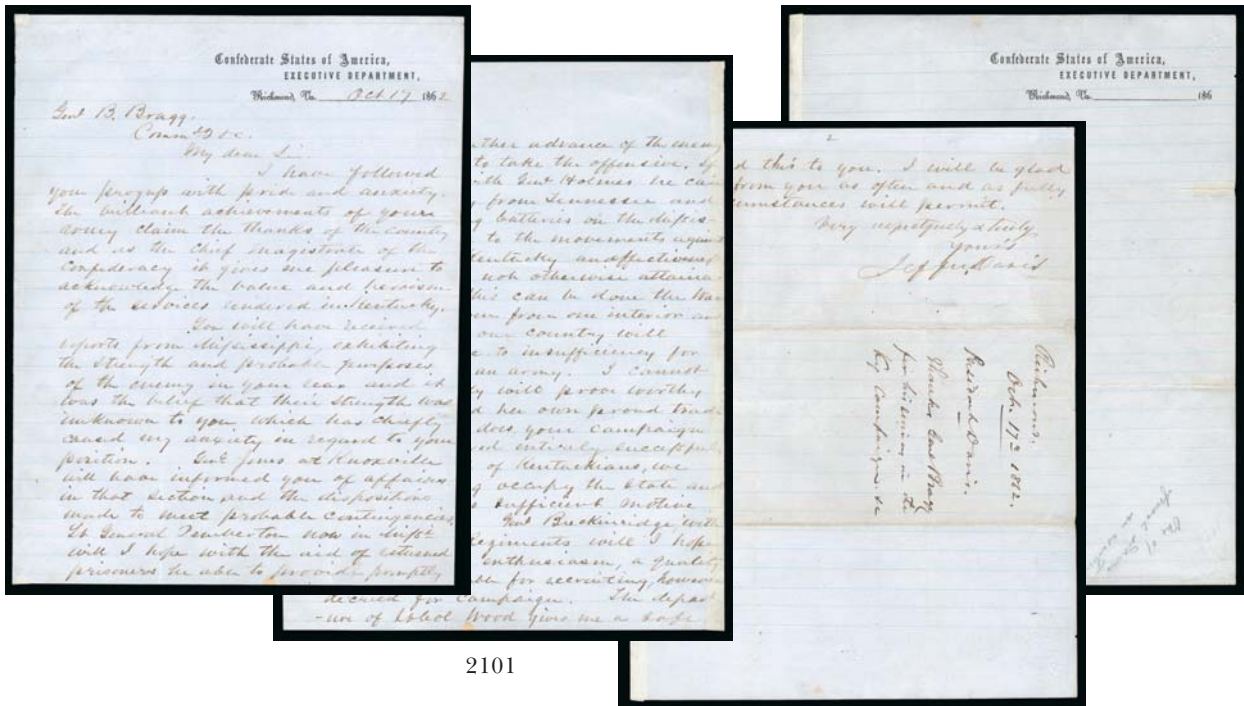 Confederate States of America,
EXECUTIVE DEPARTMENT,
Richmond, Va. Oct 17 1862
Genl B. Bragg.
Commdg &c.
My dear Sir.
I have followed
your progress with pride and anxiety.
The brilliant achievements of your
army claim the thanks of the country
and as the chief magistrate of the
Confederacy it gives me pleasure to
acknowledge the value and heroism
of the services rendered in Kentucky.
You will have received
reports from Mississippi, exhibiting
the strength and probable purposes
of the enemy in your rear and it
was the belief that their strength was
unknown to you which has chiefly
caused my anxiety in regard to your
position. Genl Jones at Knoxville
will have informed you of affairs
in that section, and the dispositions
made to meet probable contingencies
Lt General Pemberton now in Missi
will I hope with the aid of returned
prisoners be able to provide promptly
ther advance of the enemy
to take the offensive. If
with Genl Holmes he can
from Tennessee and
g batteries on the Missis-
to the movements against
Kentucky an effectiveness
not otherwise attaina-
this can be done the War
from our interior and
our country will
e to insufficiency for
an army. I cannot
ky will prove worthy
d her own proud trad
does your campaign
ed entirely successful
of Kentuckians, we
g occupy the State and
s sufficient motive
Genl Breckinridge with
Regiments will I hope
enthusiasm, a quality
able for recruiting, however
decried for Campaign. The depar
-ure of Lt Col Wood gives me a safe
2
d this to you. I will be glad
from you as often and as fully
cumstances will permit.
Very respectfully & truly
Yours
Jeffn Davis
Richmond.
Oct. 17 1862.
President Davis.
Thanks Genl Bragg
for his services in the
Ky Campaign &c
Confederate States of America,
EXECUTIVE DEPARTMENT,
Richmond, Va. 186
2101